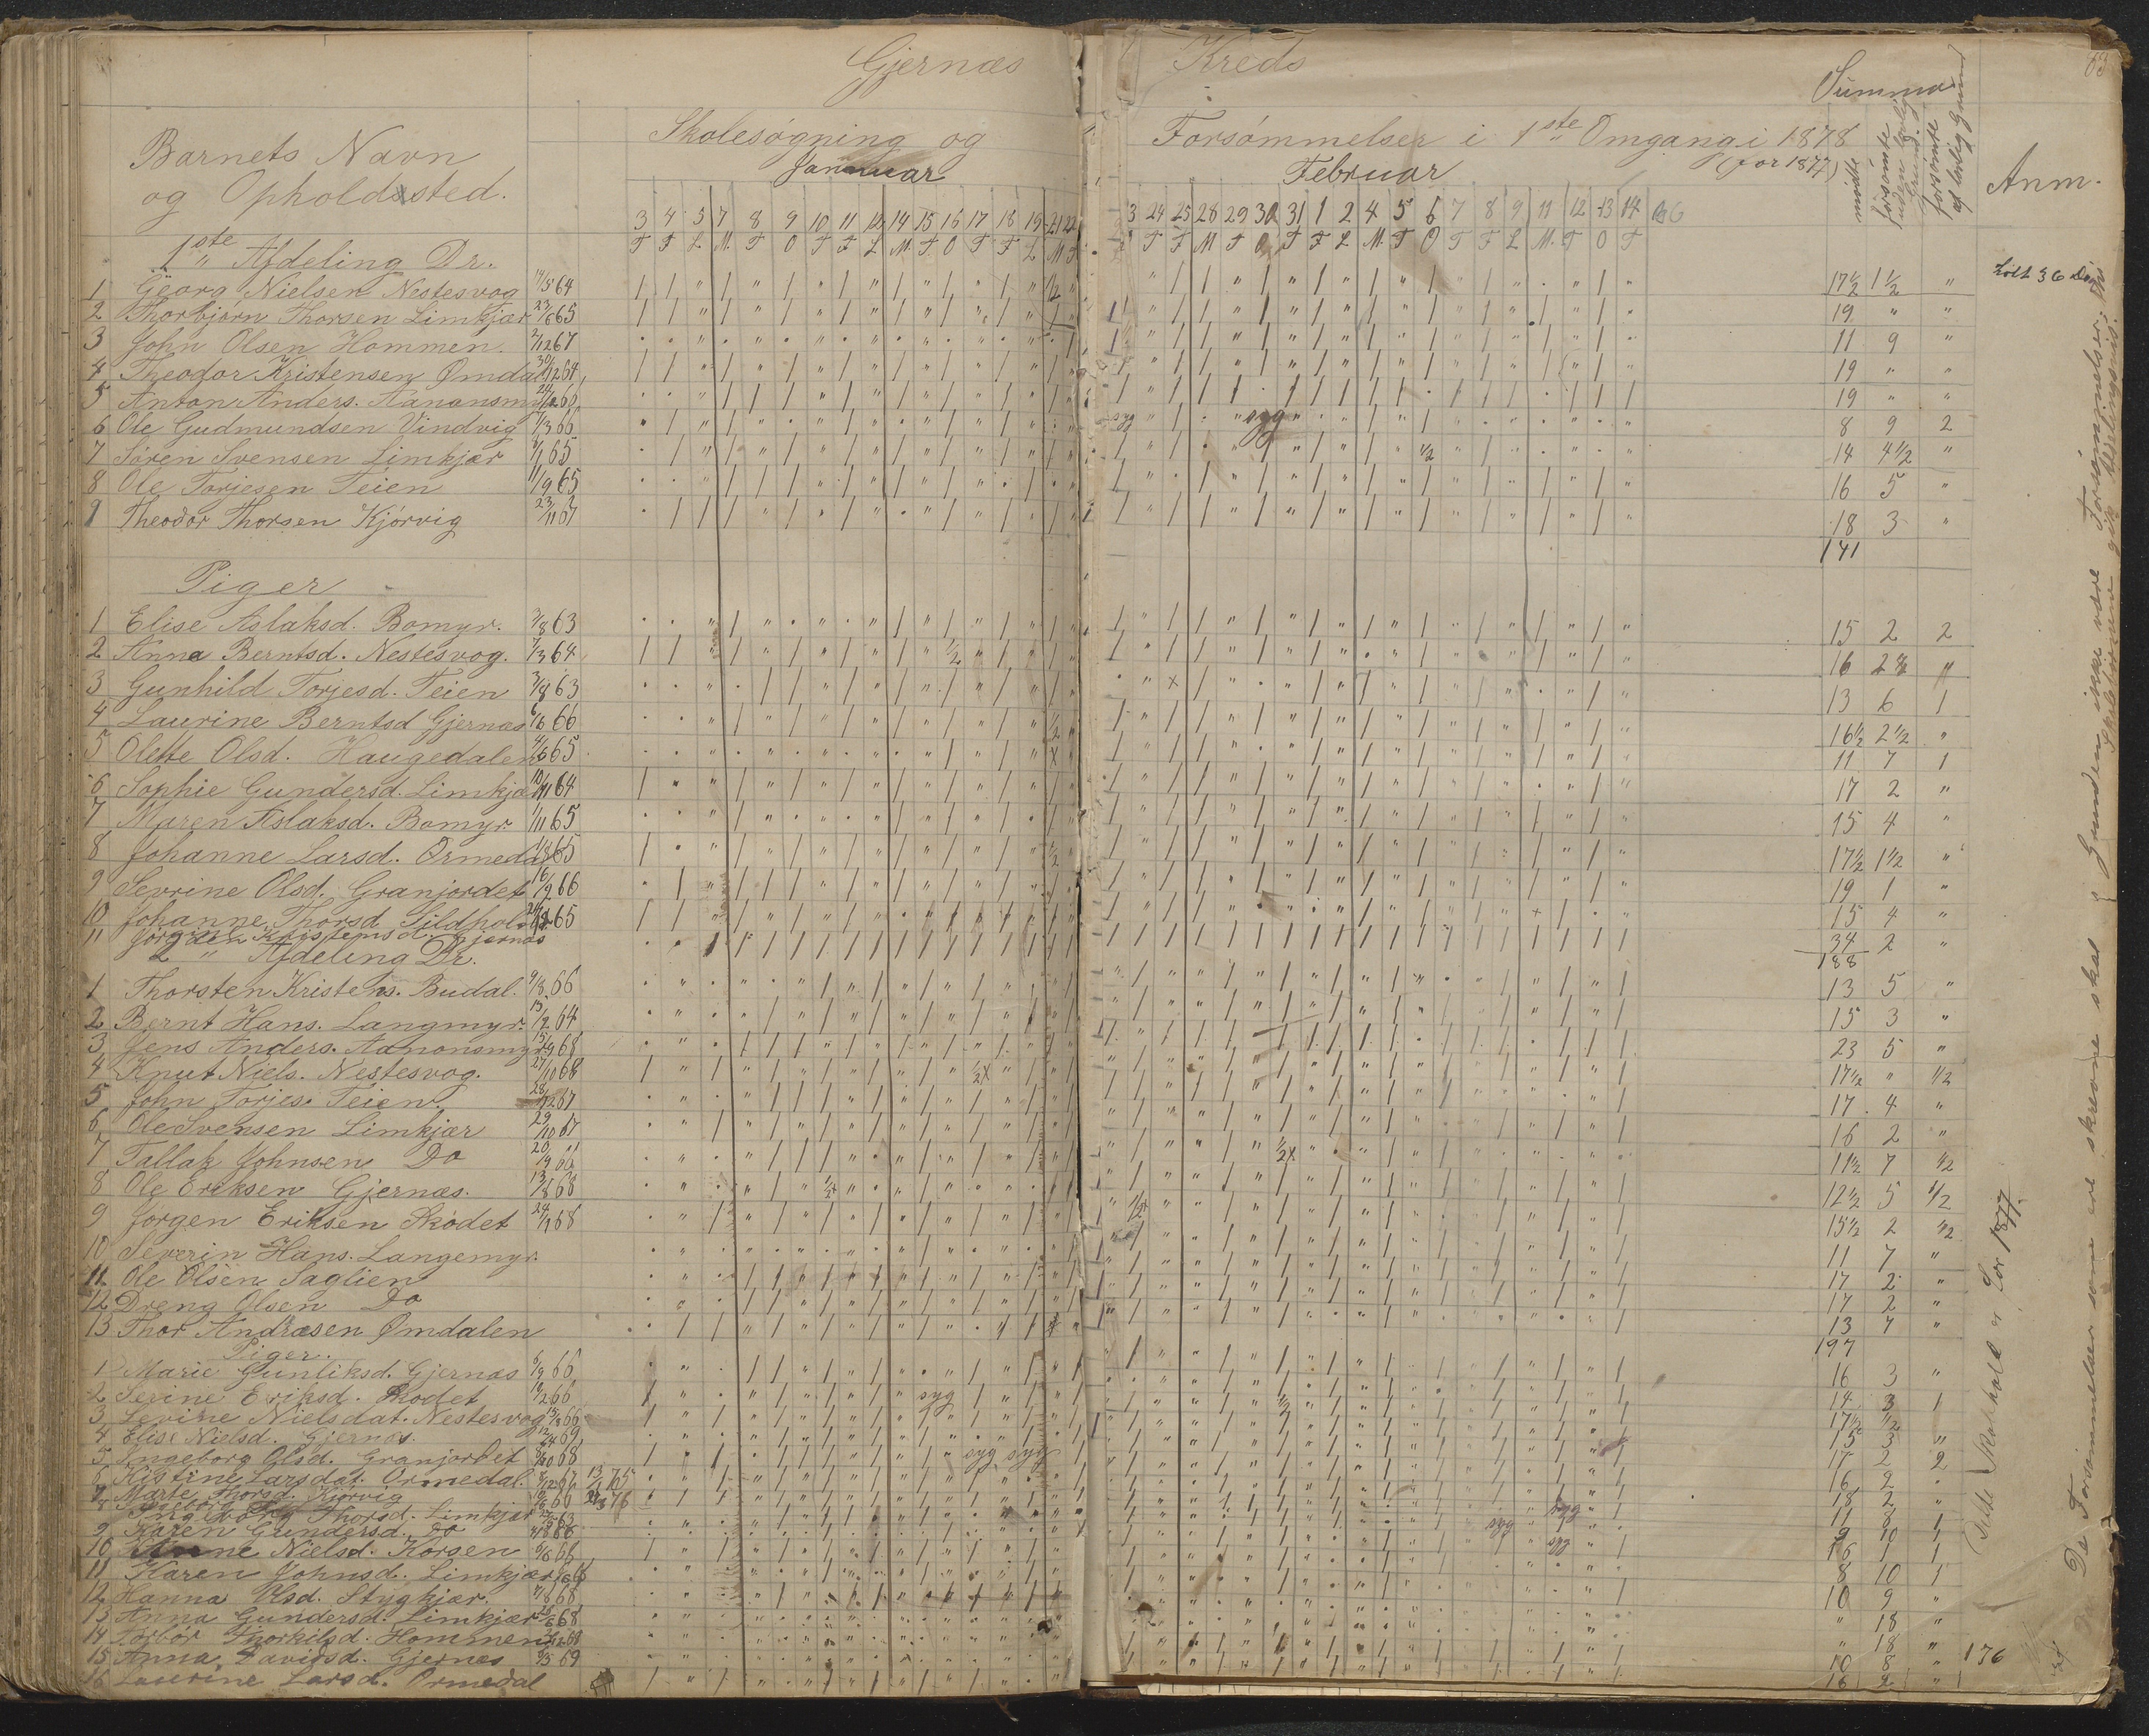 Gjernæs Kreds
63
Barnets Navn og Opholdssted.
Skolesøgning og Forsømmelser i 1ste Omgang i 1878
(for 1877)
Januar
Februar
Summa
mødte
forsømte uden lovlig Grund
forsømte af lovlig Grund
Anm.
3 4 5 7 8 9 10 11 12 14 15 16 17 18 19 21 22
3 24 25 28 29 30 31 1 2 4 5 6 7 8 9 11 12 13 14
T F L M. T O T F L M T O T F L M T
T F M T O T F L M. T O T F L M. T O T
1ste Afdeling Dr.
1 Georg Nielsen Nestesvog 14/5 64 17½ 1½ "
holdt 36 Dage
2 Thorbjørn Thorsen Limkjær 23/6 65 19 " "
3 John Olsen Hommen. 2/12 67 11 9 "
4 Theodor Kristensen Ømdal 30/12 64 19 " "
5 Anton Anders. Aanonsmyr 19 " "
6 Ole Gudmundsen Vindvig 7/3 66 syg syg 8 9 2
7 Søren Svensen Limkjær 4/1 65 ½ 14 4½ "
8 Ole Torjesen Teien 11/9 65 16 5 "
9 Theodor Thorsen Kjørvig 23/11 67 18 3 "
141
Piger
1 Elise Aslaksd. Bomyr. 3/8 63 15 2 2
2 Anna Berntsd. Nestesvog. 7/3 64 ½ 16 2½ "
3 Gunhild Torjesd. Teien 3/8 63 13 6 1
4 Laurine Berntsd Gjernæs 6/6 66 ½ 16½ 2½ "
5 Olette Olsd. Haugedalen 4/6 65 11 7 1
6 Sophie Gundersd. Limkjær 10/11 64 17 2 "
7 Maren Aslaksd. Bomyr. 1/11 65 15 4 "
8 Johanne Larsd. Ormedal 65 ½ 17½ 1½ "
9 Sevrine Olsd. Granjordet 16/9 66 19 1 "
10 Johanne Thorsd Sildholm 65 15 4 "
11 Jørgine Kristensd. Gjernæs 34 2 "
188
2den Afdeling Dr.
1 Thorsten Kristens. Budal. 9/8 66 13 5 "
2 Bernt Hans. Langmyr. 13/2 64 15 3 "
3 Jens Anders. Aanonsmyr 15/9 68 23 5 "
4 Knut Niels. Nestesvog. 27/10 68 ½x 17½ " ½
5 John Torjes. Teien. 28/12 67 17 4 "
6 Ole Svensen Limkjær 29/10 67 16 2 "
7 Tallak Johnsen Do 20/9 66 ½x 11½ 7 ½
8 Ole Eriksen Gjernæs. 13/8 68 ½ 12½ 5 ½
9 Jørgen Eriksen Skodet 24/1 68 ½x 15½ 2 ½
10 Severin Hans. Langemyr. 11 7 "
11 Ole Olsen Saglien 17 2 "
12 Dreng Olsen Do 17 2 "
13 Thor Andræsen Ømdalen 13 7 "
197
Piger.
1 Marie Gunliksd. Gjernæs 6/9 66 16 3 "
2 Serine Eriksd. Skodet 19/2 66 syg 14 3 1
3 Levine Nielsdat. Nestesvog 15/8 66 17½ ½
4 Elise Nielsd. Gjernæs. 69 15 3 "
5 Ingeborg Olsd. Granjordet 3/10 68 syg syg 17 2 2
6 Kistine Larsdat. Ormedal. 67 16 2 "
7 Marte Thorsd. Kjørvig 66 18 2 "
8 Ingeborg Thorsd. Limkjær 63 syg 11 8 1
9 Karen Gundersd. Do 68 syg 9 10 1
10 Anne Nielsd. Korsen 6/6 66 syg 16 1 1
11 Karen Johnsd. Limkjær 66 8 10 1
12 Hanna Olsd. Stygkjær. 4/8 68 10 9 "
13 Anna Gundersd. Limkjær 68 " 18 "
14 Torbør Thorkilsd. Hommen " 18 "
15 Anna Davidsd. Gjernæs 9/5 69 10 8 "
16 Laurine Larsd. Ormedal 16 2 "
176
Dette Skolehold er for 1877.
De Forsømmelser som ere skrevne skal i Grunden ikke være Forsømmelser; thi
Skolebørnene gik